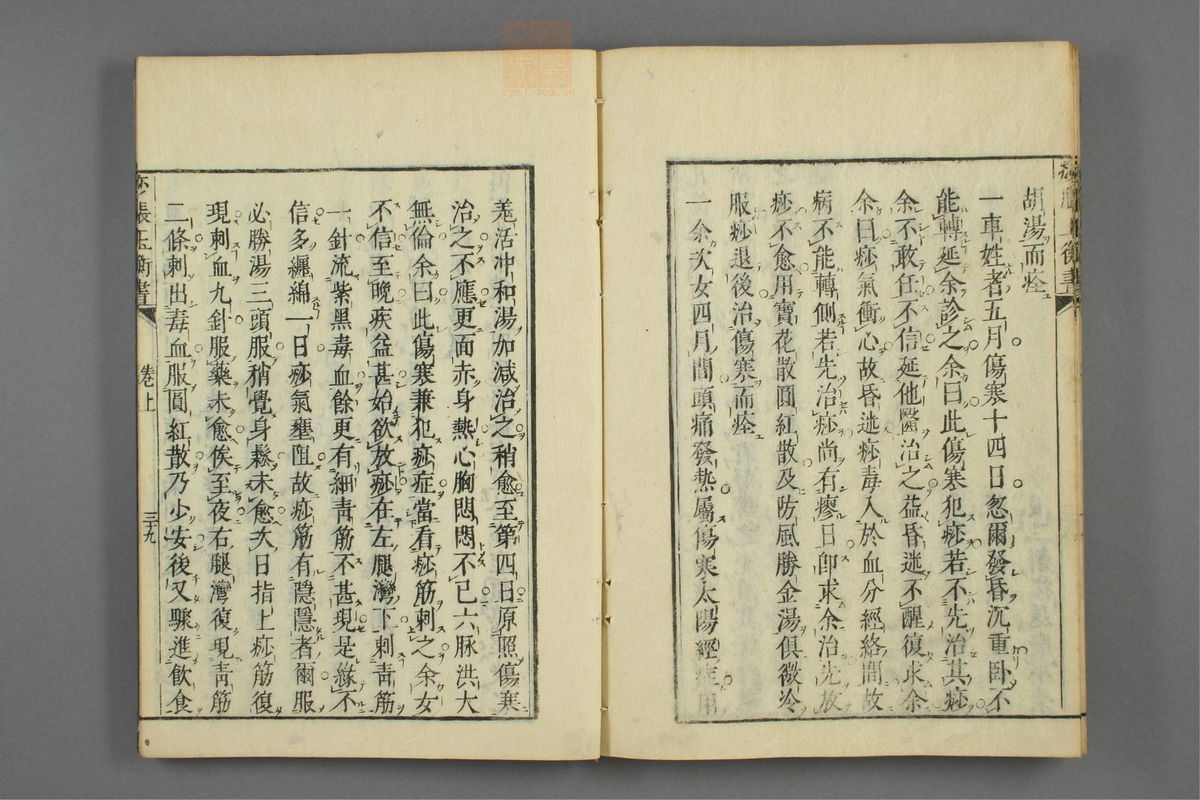 胡湯而痊
一車姓者五月傷寒十四日忽爾發昏沉重卧不
能轉延余診之余曰此傷寒犯痧若不先治其痧
余不敢任不信延他醫治之益昏迷不醒復求余
余曰痧氣衝心故昏迷痧毒入於血分經絡間故
病不能轉側若先治痧尚有瘳日卽求余治先放
痧不愈用寶花散圓紅散及防風勝金湯俱微冷
服痧退後治傷寒而痊
一余次女四月間頭痛發熱屬傷寒太陽經症用
羗活冲和湯加減治之稍愈至第四日原照傷寒
治之不應更面赤身熱心胸悶悶不已六脉洪大
無倫余曰此傷寒兼犯痧症當看痧筋刺之余女
不信至晚疾益甚始欲放痧在左腿灣下刺靑筋
一針流紫黑毒血餘更有細靑筋不甚現是緣不
信多纏綿一日痧氣壅阻故痧筋有隱隱者爾服
必勝湯三頭服稍覺身鬆未愈次日指上痧筋復
現刺血九針服藥未愈俟至夜右腿灣復現靑筋
二條刺出毒血服圓紅散乃少安後又驟進飲食
痧脹玉衡書
卷上
三十九